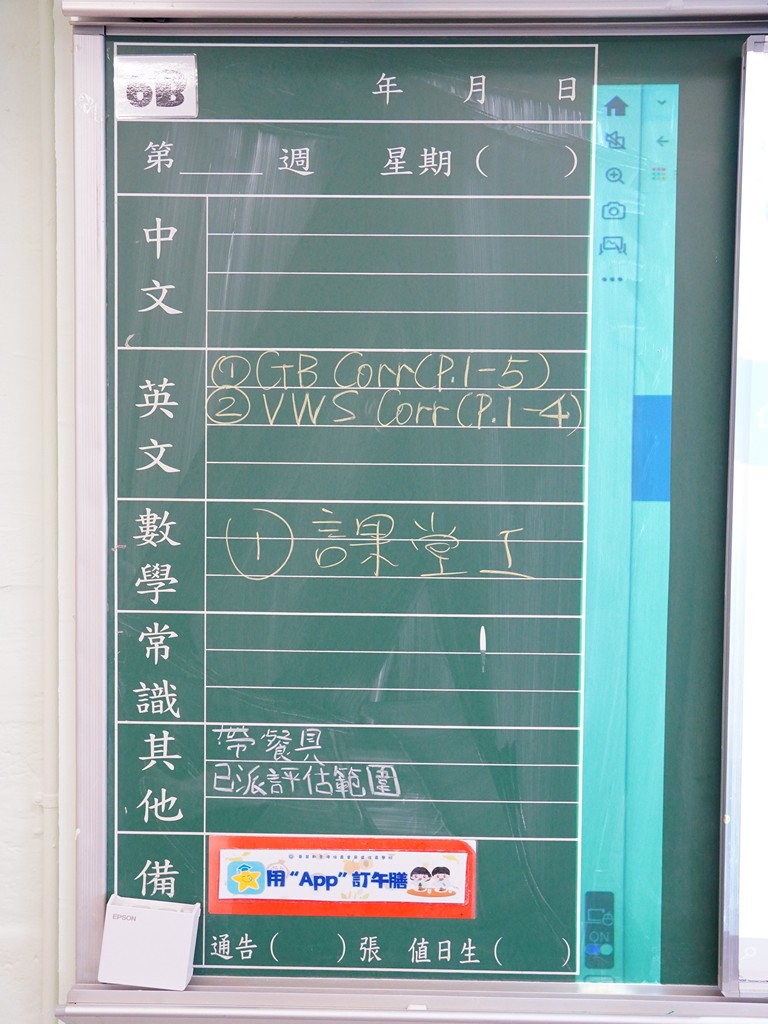 6B
年 月 日
第____週 星期( )
中文
英文
①GB Corr(P.1-5)
②VWS Corr(P.1-4)
數學
①課堂工
常識
其他
帶餐具
已派評估範圍
備
用“App”訂午膳
EPSON
通告( )張 值日生( )
ON